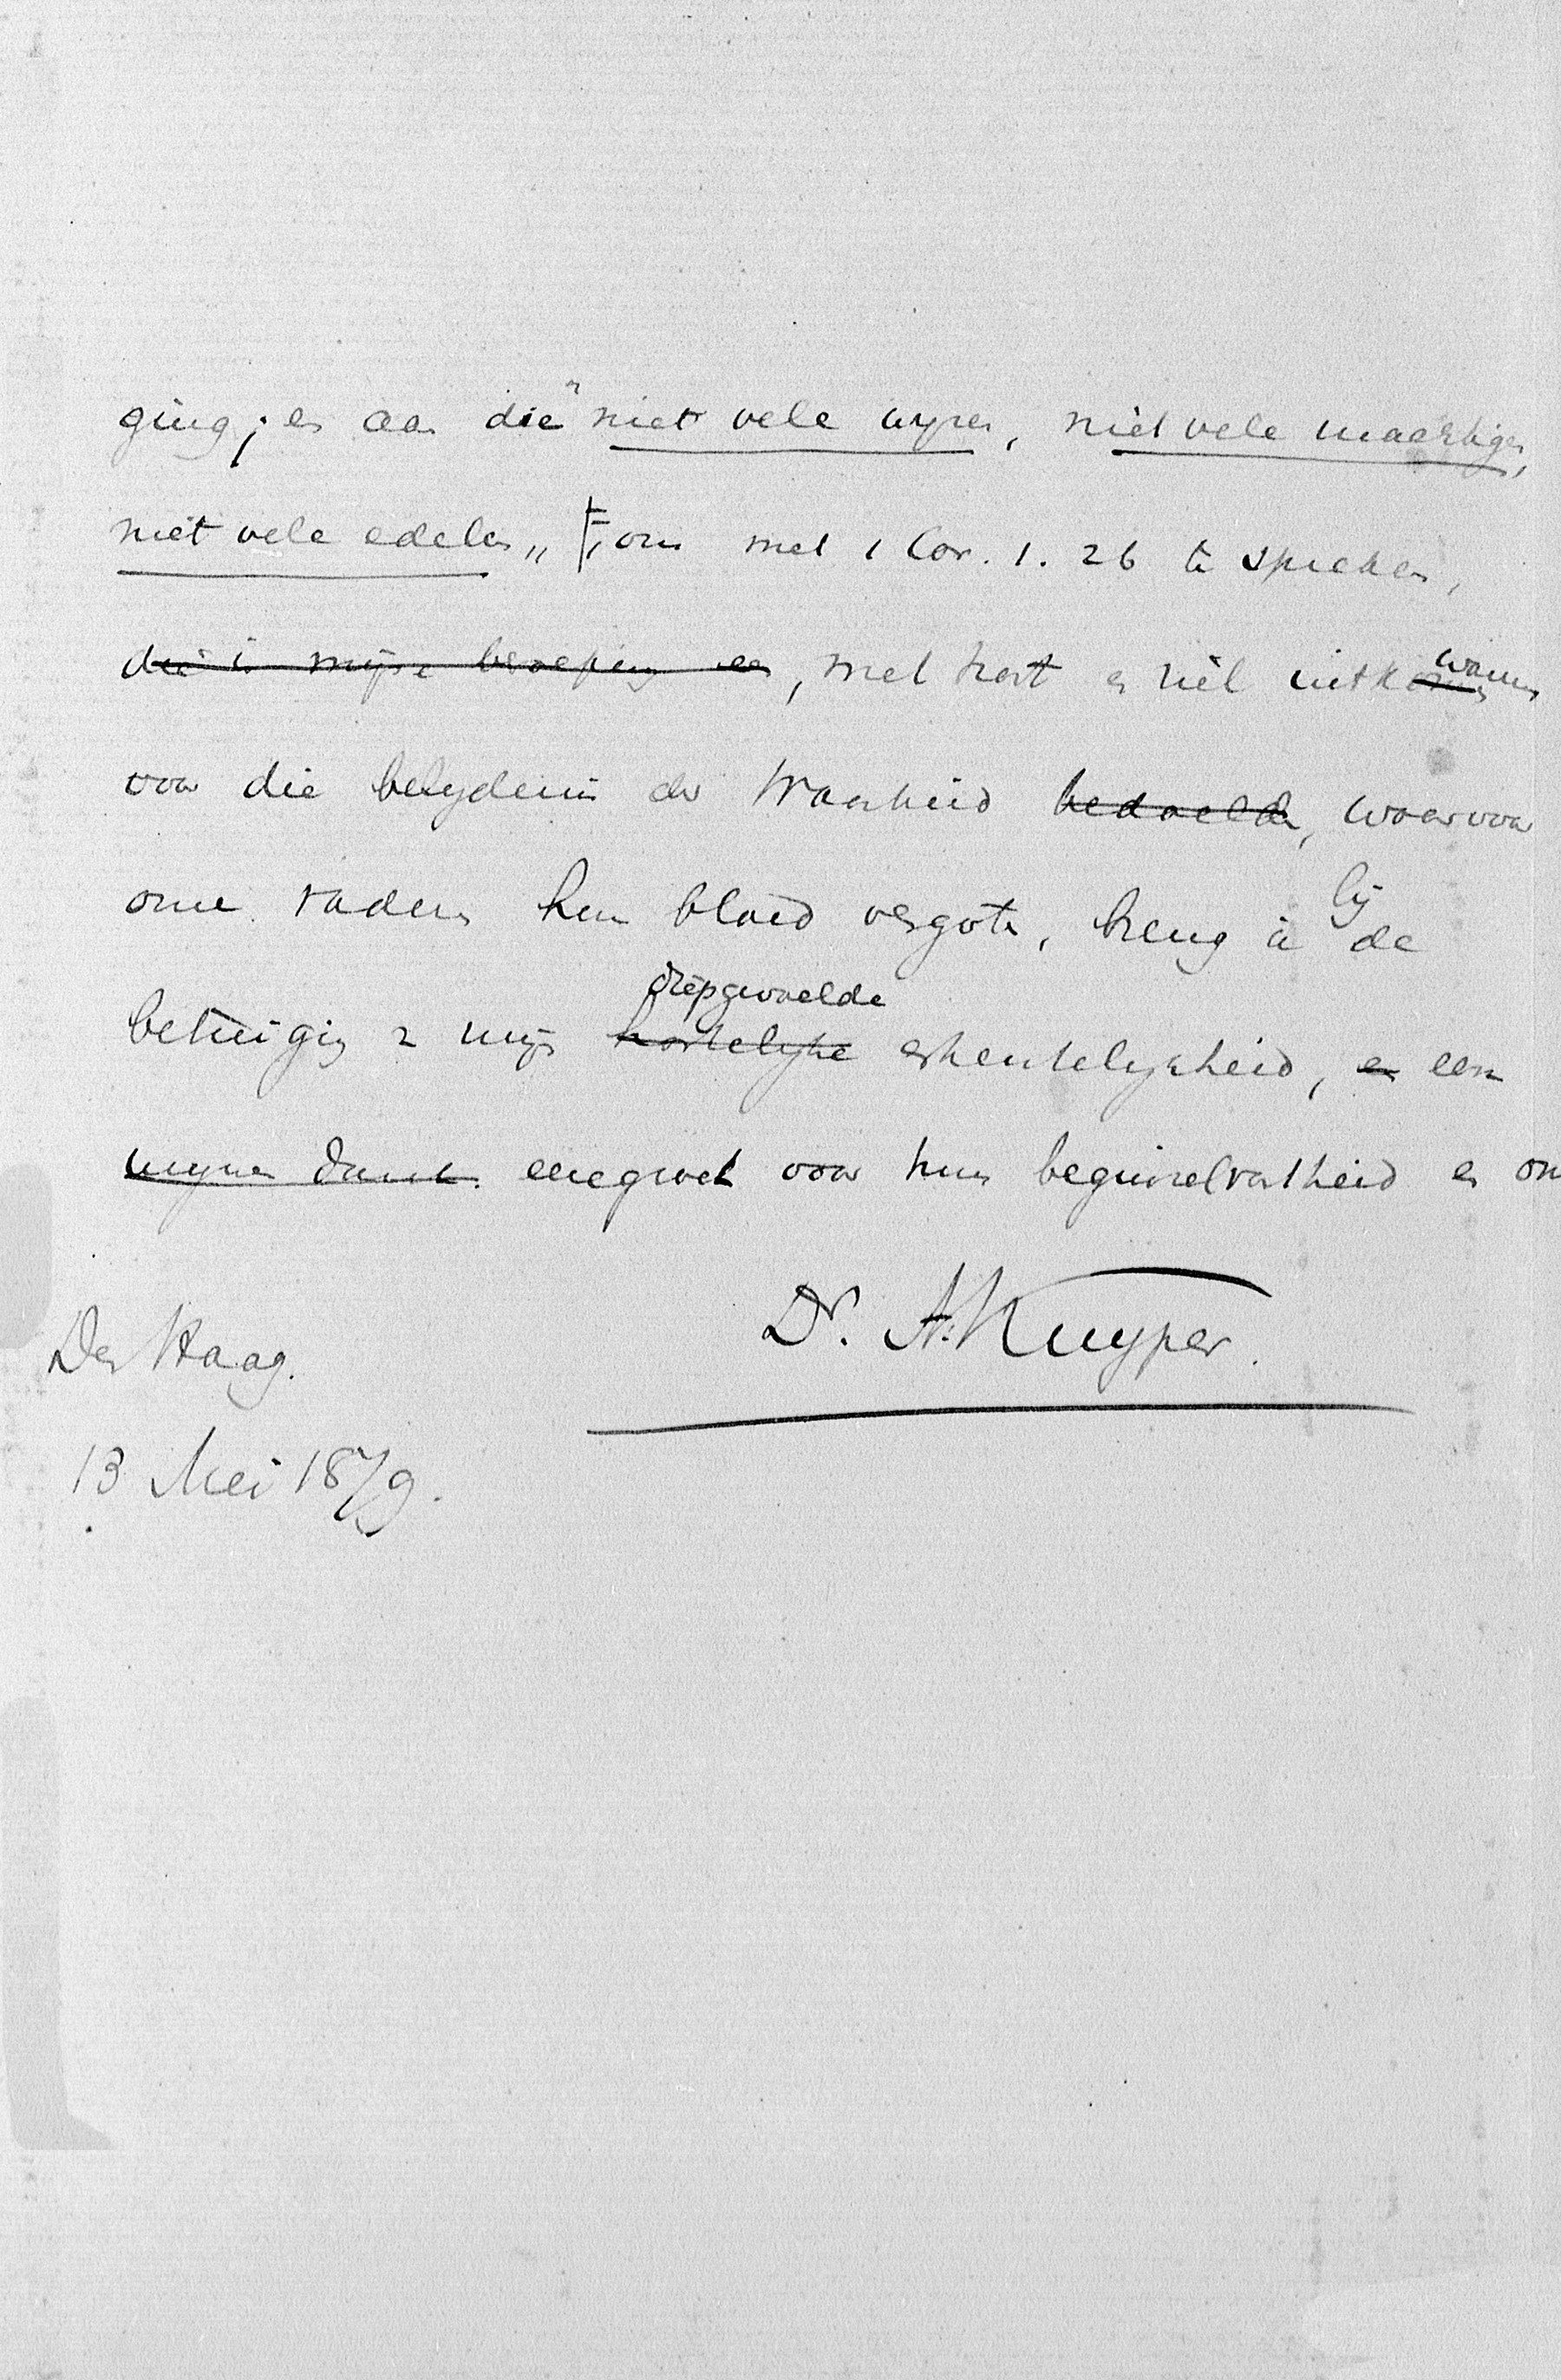 ging; en aan die "niet vele wyzen, niet vele machtigen,
niet vele edelen" om met 1 Cor. 1. 26 te spreken,
die in mijne beroeping en, met hart en ziel uitkwamen
voor die belydenis der Waarheid bedoelde, waarvoor
onze vaderen hun bloed vergoten, breng ik bij de
betuiging van mijn diepgevoelde hartelyke erkentelykheid, en een
mynen dank. eeregroet voor hun beginselvastheid en
Dr. A. Kuyper.
Den Haag.
13 Mei 1879.